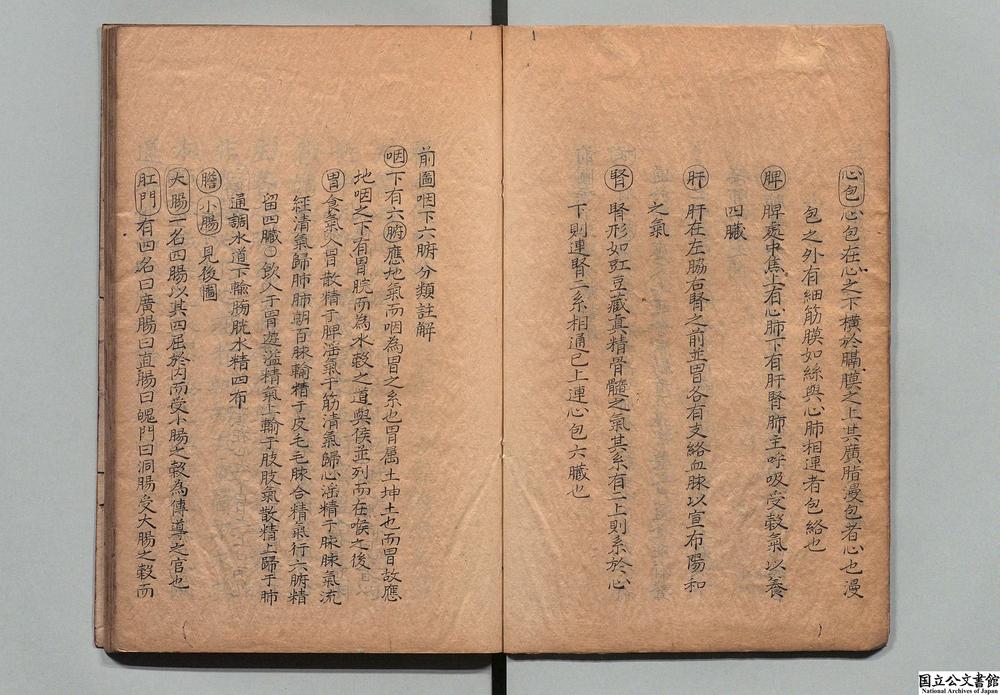 心包心包在心之下橫於膈膜之上其廣脂漫包者心也漫
包之外有細筋膜如絲與心肺相連者包絡也
脾脾處中焦上有心肺下有肝腎肺主呼吸受穀氣以養
四臟
肝肝在左脇右腎之前並胃各有支絡血脉以宣布陽和
之氣
腎腎形如豇豆藏真精骨髓之氣其系有二上則系於心
下則連腎二系相通已上連心包六臟也
前圖咽下六腑分類註解
咽下有六腑應地氣而咽為胃之系也胃属土坤土也而胃故應
地咽之下有胃脘而為水穀之道與侯並列而在喉之後
胃食氣入胃散精于脾淫氣于筋清氣歸心淫精于脉脉氣流
經清氣歸肺肺朝百脉輸精于皮毛毛脉合精氣行六腑精
留四臟○飲入于胃遊溢精氣上輸于肢肢氣散精上歸于肺
通調水道下輸膀胱水精四布
膽小腸見後圖
大腸一名四腸以其四屈於内而受小腸之穀為傳導之官也
肛門有四名曰廣腸曰直腸曰魄門曰洞腸受大腸之穀而
国立公文書館
National Archives of Japan